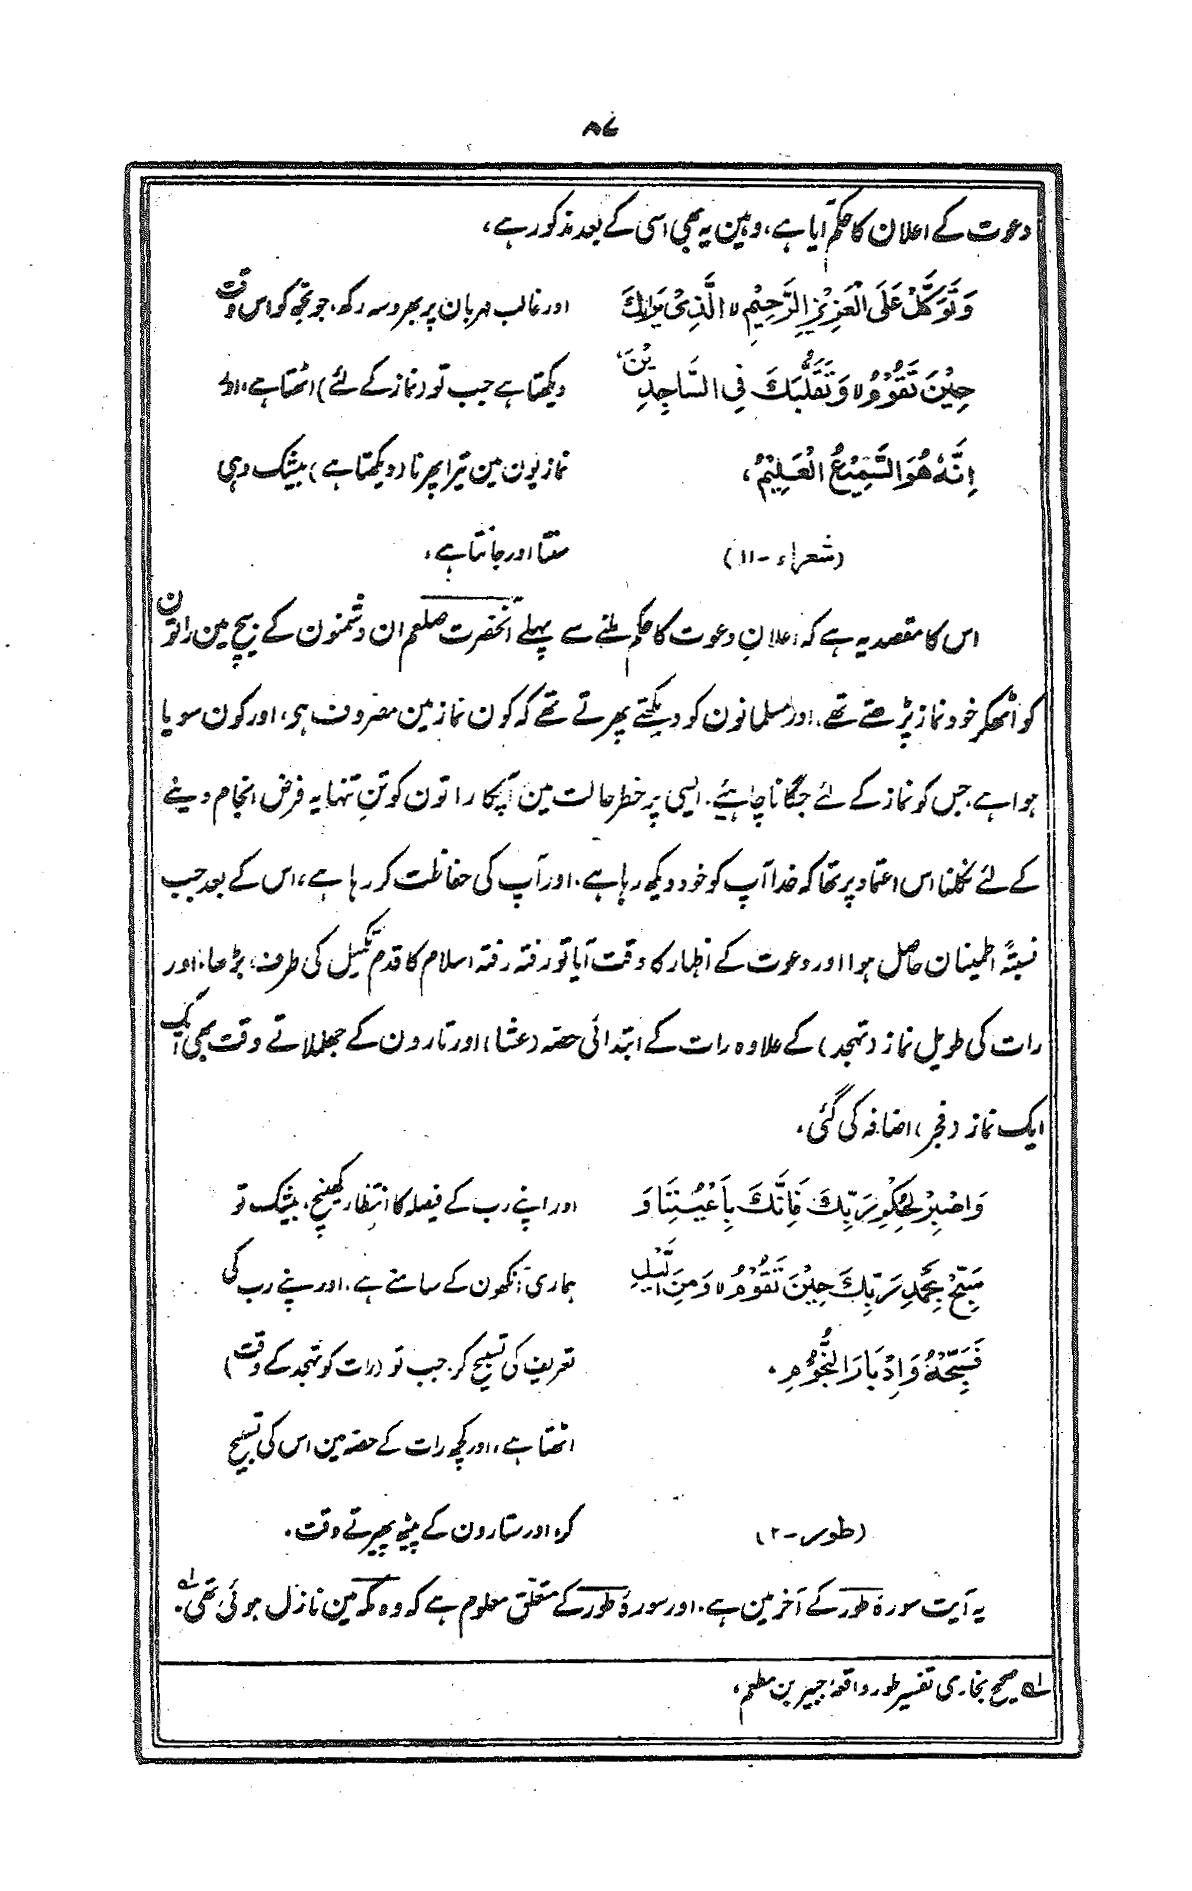 ۸۷
دعوت کے اعلان کا حکم آیا ہے، وہین یہ بھی اسی کے بعد مذکور ہے،
وَتَوَكَّلْ عَلَى الْعَزِيْزِ الرَّحِيْمِ ہ الَّذِیْ يَرَاكَ
اور غالب مہربان پر بھروسہ رکھ، جو تجھ کو اس وقت
حِيْنَ تَقُوْمُ ہ وَتَقَلُّبَكَ فِی السَّاجِدِيْنَ،
دیکھتا ہے جب تو (نماز کے لئے) اٹھتا ہے، اور
اِنَّهٗ هُوَ السَّمِيْعُ الْعَلِيْمُ،
نمازیون مین تیرا پھرنا (دیکھتا ہے) بیشک وہی
(شعراء-۱۱)
سنتا اور جانتا ہے،
اس کا مقصد یہ ہے کہ اعلانِ دعوت کا حکم ملنے سے پہلے آنحضرت صلعم ان دشمنون کے بیچ مین راتون
کو اٹھکر خود نماز پڑھتے تھے، اور مسلمانون کو دیکھتے پھرتے تھے کہ کون نماز مین مصروف ہی، اور کون سویا
ہوا ہے، جس کو نماز کے لئے جگانا چاہئے، ایسی پر خطر حالت مین آپکا راتون کو تنِ تنہا یہ فرض انجام دینے
کے لئے نکلنا اس اعتماد پر تھا کہ خدا آپ کو خود دیکھ رہا ہے، اور آپ کی حفاظت کر رہا ہے، اس کے بعد جب
نسبتہً اطمینان حاصل ہوا اور دعوت کے اظہار کا وقت آیا تو رفتہ رفتہ اسلام کا قدم تکمیل کی طرف بڑھا، اور
رات کی طویل نماز (تہجد) کے علاوہ رات کے ابتدائی حصہ (عشا) اور تارون کے جھلملاتے وقت بھی ایک
ایک نماز (فجر) اضافہ کی گئی،
وَاصْبِرْ لِحُكْمِ رَبِّكَ فَاِنَّكَ بِاَعْيُنِنَا وَ
اور اپنے رب کے فیصلہ کا انتظار کھینچ، بیشک تو
سَبِّحْ بِحَمْدِ رَبِّكَ حِيْنَ تَقُوْمُ ہ وَمِنَ الَّيْلِ
ہماری آنکھون کے سامنے ہے، اور اپنے رب کی
فَسَبِّحْهُ وَاِدْبَارَ النُّجُوْمِ،
تعریف کی تسبیح کر، جب تو (رات کو تہجد کے وقت)
اٹھتا ہے، اور کچھ رات کے حصہ مین اس کی تسبیح
(طور-۲)
کر، اور ستارون کے پیٹھ پھیرتے وقت،
یہ آیت سورۂ طور کے آخر مین ہے، اور سورۂ طور کے متعلق معلوم ہے کہ وہ مکہ مین نازل ہوئی تھی،؂۱
؂۱ صحیح بخاری تفسیر طور و واقعۂ جبیر بن مطعم،